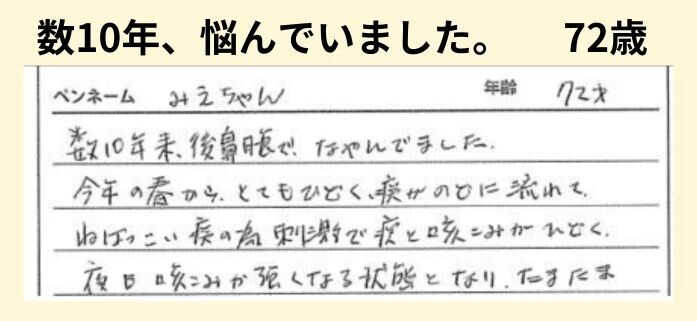 数10年、悩んでいました。 72歳
ペンネーム みえちゃん 年齢 72才
数10年来、後鼻漏で、なやんでました。
今年の春から、とてもひどく、痰がのどに流れて、
ねばっこい痰の為刺激で痰と咳こみがひどく、
夜日咳こみが強くなる状態となり、たまたま